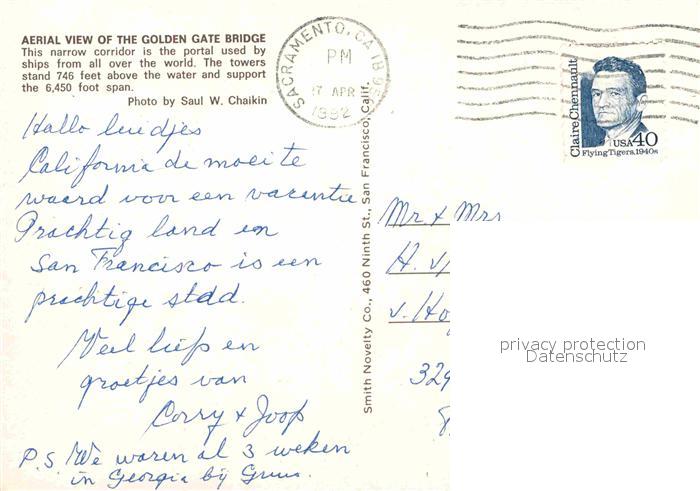 AERIAL VIEW OF THE GOLDEN GATE BRIDGE
This narrow corridor is the portal used by
ships from all over the world. The towers
stand 746 feet above the water and support
the 6,450 foot span.
Photo by Saul W. Chaikin
SACRAMENTO, CA
PM
17 APR
1992
Claire Chennault
USA 40
Flying Tigers, 1940s
Hallo luidjes
California de moeite
waard voor een vacantie
Prachtig land en
San Francisco is een
prachtige stad.
Veel liefs en
groetjes van
Corry + Joop
P.S. We waren al 3 weken
in Georgia bij Guus.
Smith Novelty Co., 460 Ninth St., San Francisco, Calif.
Mr + Mrs
H. v
v. Ho
329
privacy protection
Datenschutz